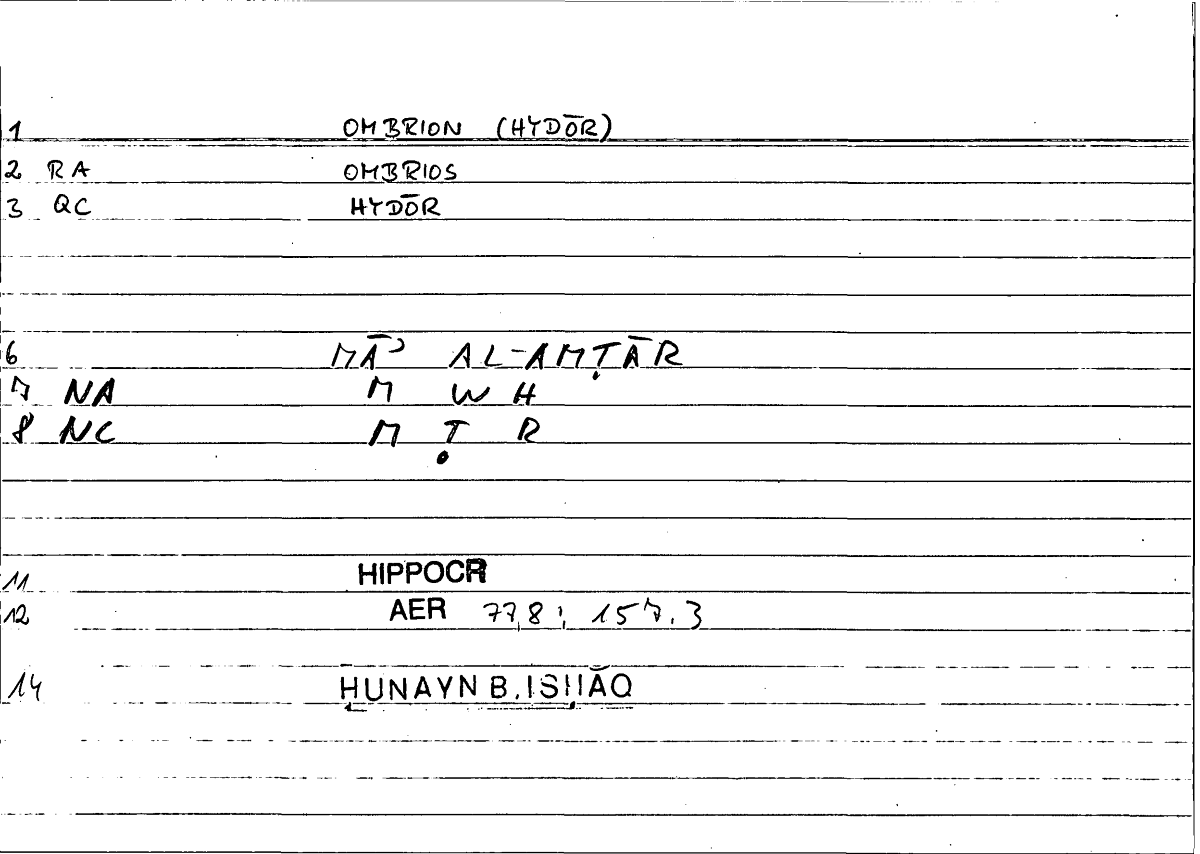 1 OMBRION (HYDŌR)
2 RA OMBRIOS
3 QC HYDŌR
6 MĀʾ AL-AMṬĀR
7 NA M W H
8 NC M Ṭ R
11 HIPPOCR
12 AER 77,8; 157.3
14 ḤUNAYN B. ISḤĀQ